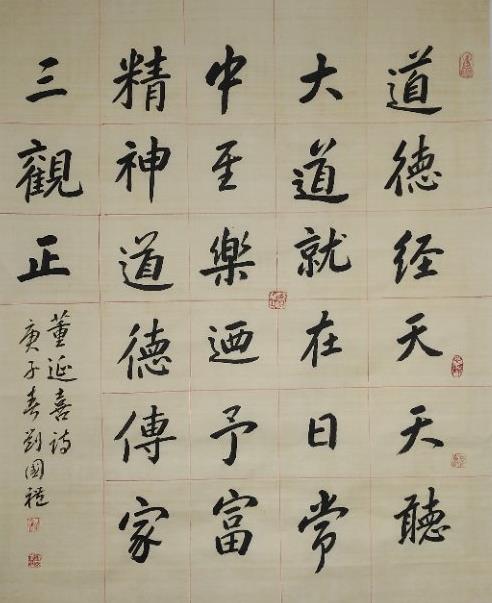 道德经天天聽
大道就在日常
中至樂迺予富
精神道德傳家
三觀正
董延喜诗
庚子春劉國禮